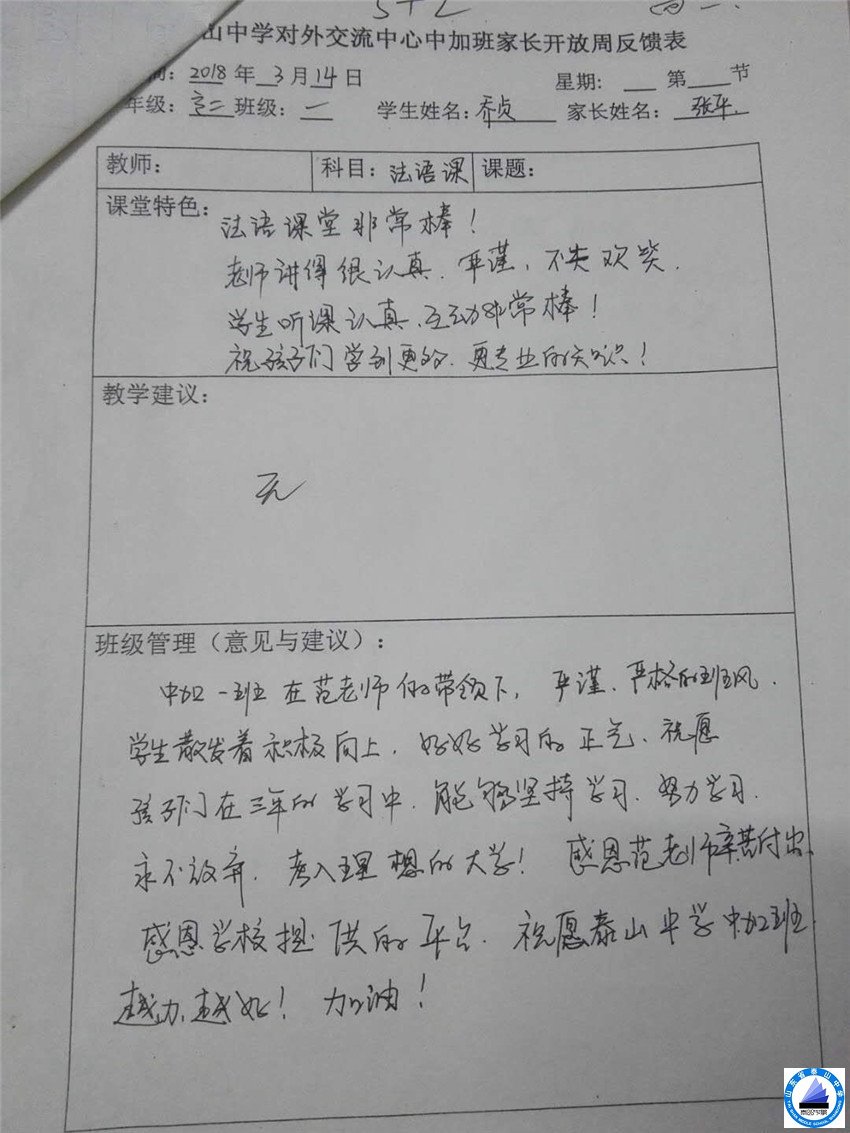 山中学对外交流中心中加班家长开放周反馈表
2018年 3月14日 星期: 第 节
年级: 高二 班级: 一 学生姓名: 乔贞 家长姓名: 张平.
教师: 科目: 法语课 课题:
课堂特色:
法语课堂非常棒!
老师讲得很认真、严谨,不失欢笑.
学生听课认真、互动非常棒!
祝孩子们学到更多、更专业的知识!
教学建议:
无
班级管理(意见与建议):
中加一班在范老师的带领下, 严谨、严格的班风.
学生散发着积极向上、好好学习的正气、祝愿
孩子们在三年的学习中、能够坚持学习、努力学习.
永不放弃、考入理想的大学! 感恩范老师辛苦付出.
感恩学校提供的平台. 祝愿泰山中学中加班
越办越好! 加油!
山东省泰山中学